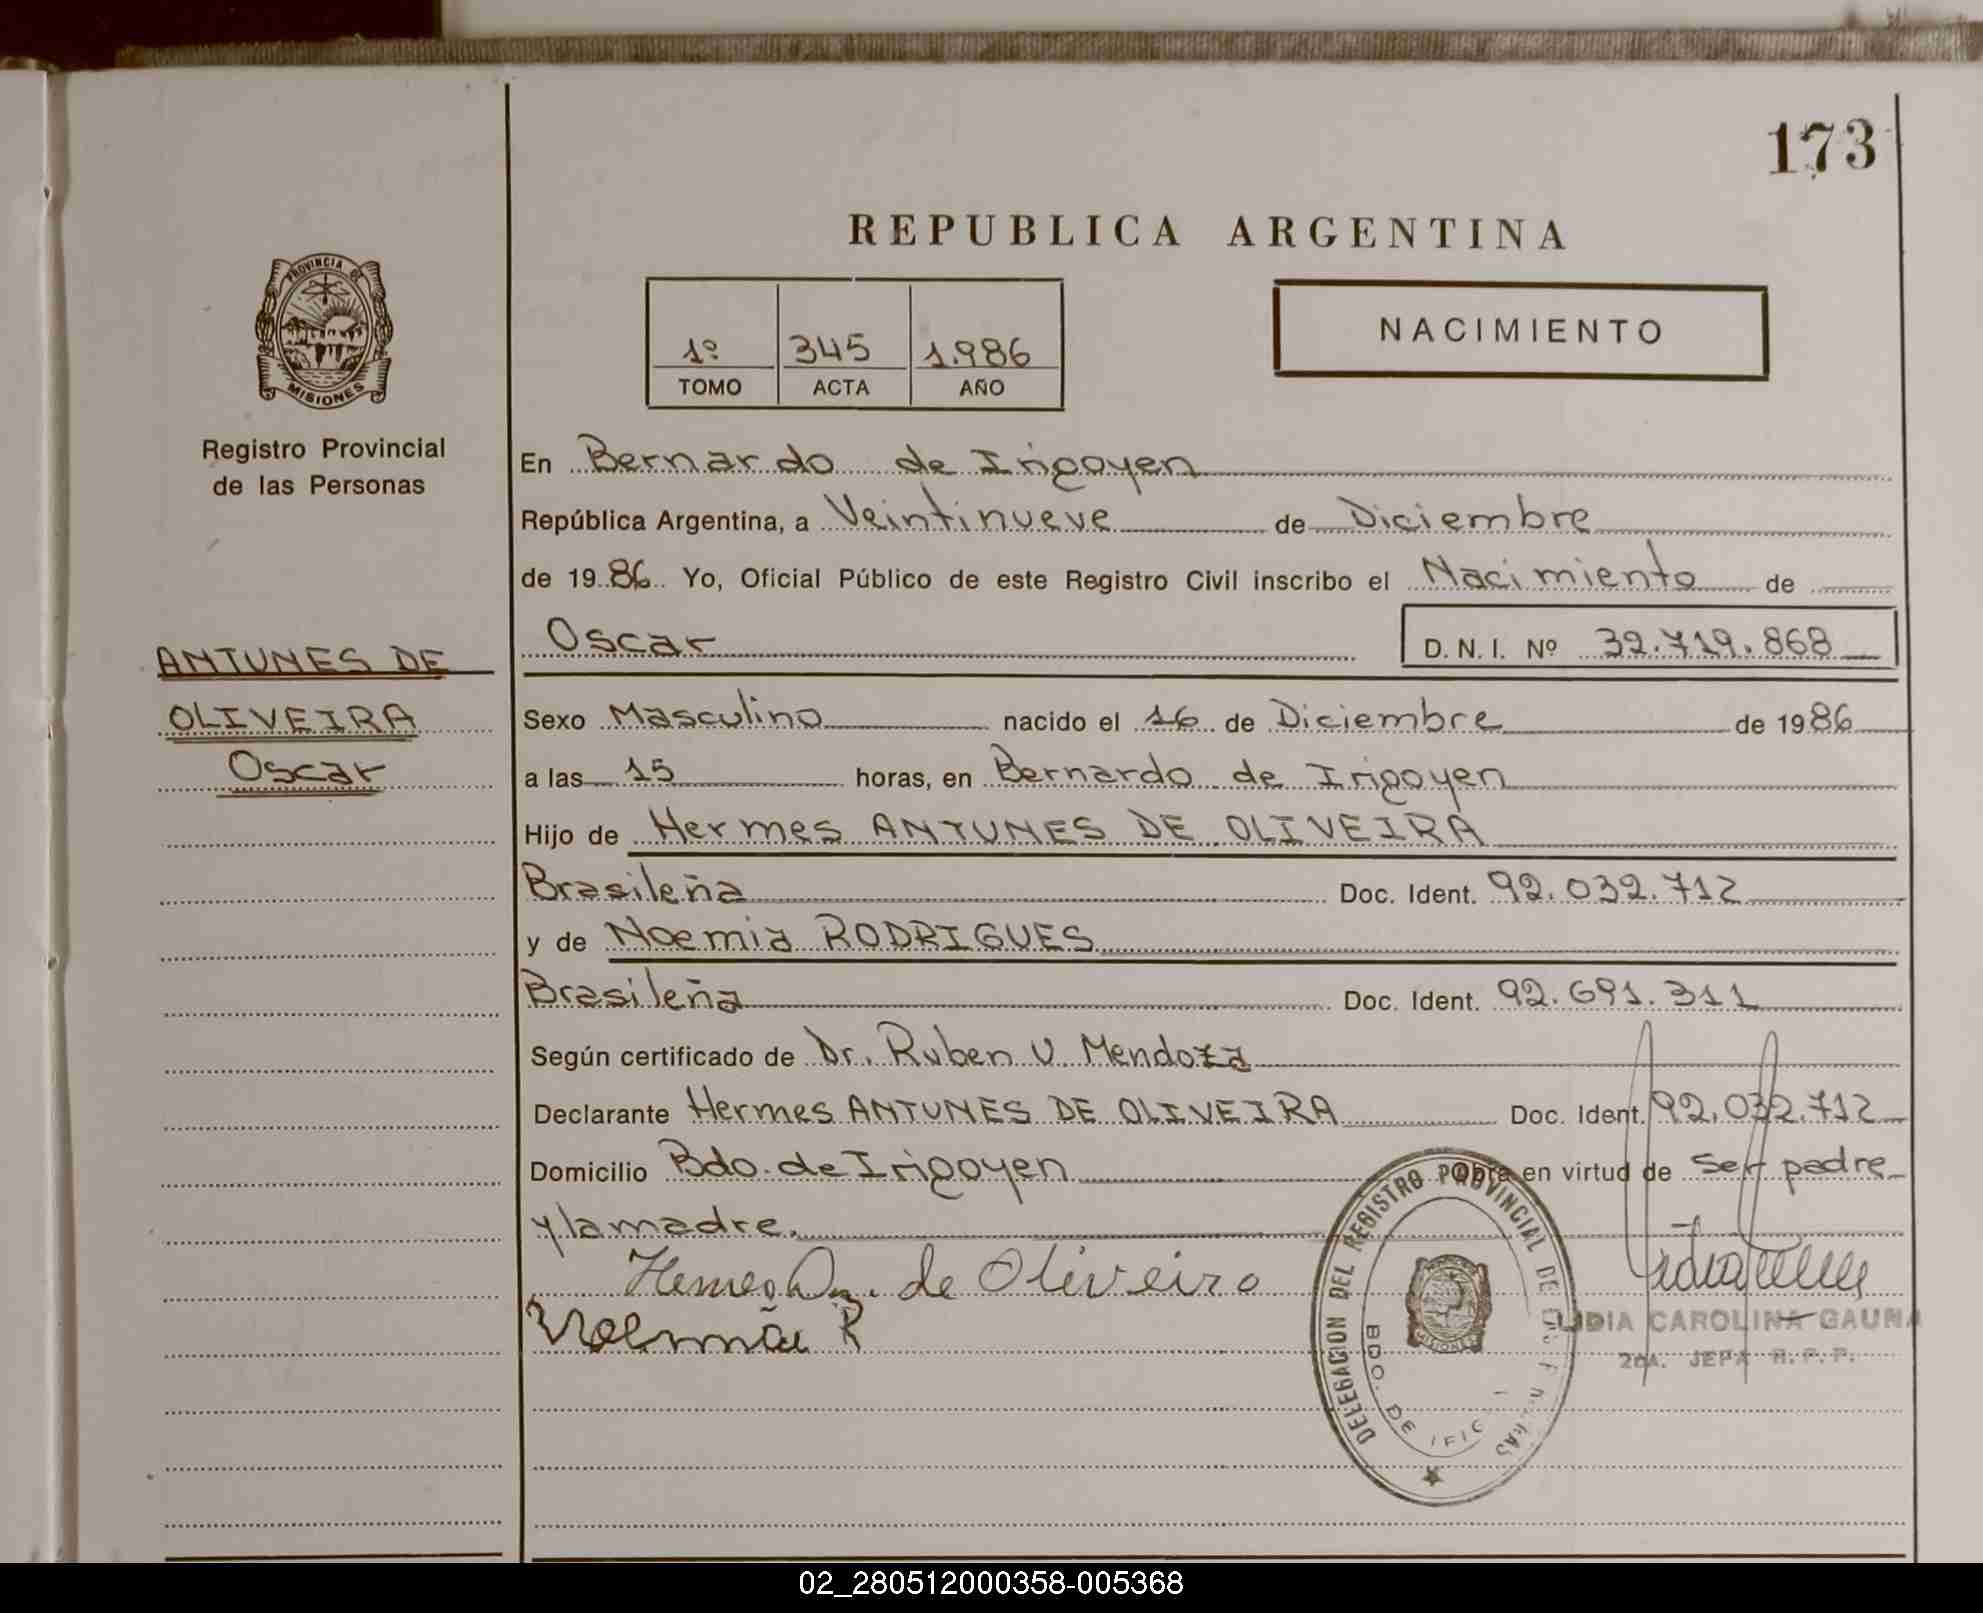 173
REPUBLICA ARGENTINA
PROVINCIA DE
MISIONES
Registro Provincial
de las Personas
1º 345 1.986
TOMO ACTA AÑO
NACIMIENTO
En Bernardo de Irigoyen
República Argentina, a Veintinueve de Diciembre
de 1986 Yo, Oficial Público de este Registro Civil inscribo el Nacimiento de
Oscar D.N.I. Nº 32.719.868
ANTUNES DE
OLIVEIRA
Oscar
Sexo Masculino nacido el 16 de Diciembre de 1986
a las 15 horas, en Bernardo de Irigoyen
Hijo de Hermes ANTUNES DE OLIVEIRA
Brasileña Doc. Ident. 92.032.712
y de Noemia RODRIGUES
Brasileña Doc. Ident. 92.691.311
Según certificado de Dr. Ruben V. Mendoza
Declarante Hermes ANTUNES DE OLIVEIRA Doc. Ident. 92.032.712
Domicilio Bdo. de Irigoyen Obra en virtud de ser padre
y la madre.
de Oliveira
Noemia R
DELEGACION DEL REGISTRO PROVINCIAL DE LAS
BDO. DE
LIDIA CAROLINA GAUNA
2da. JEFA R.P.P.
02_280512000358-005368